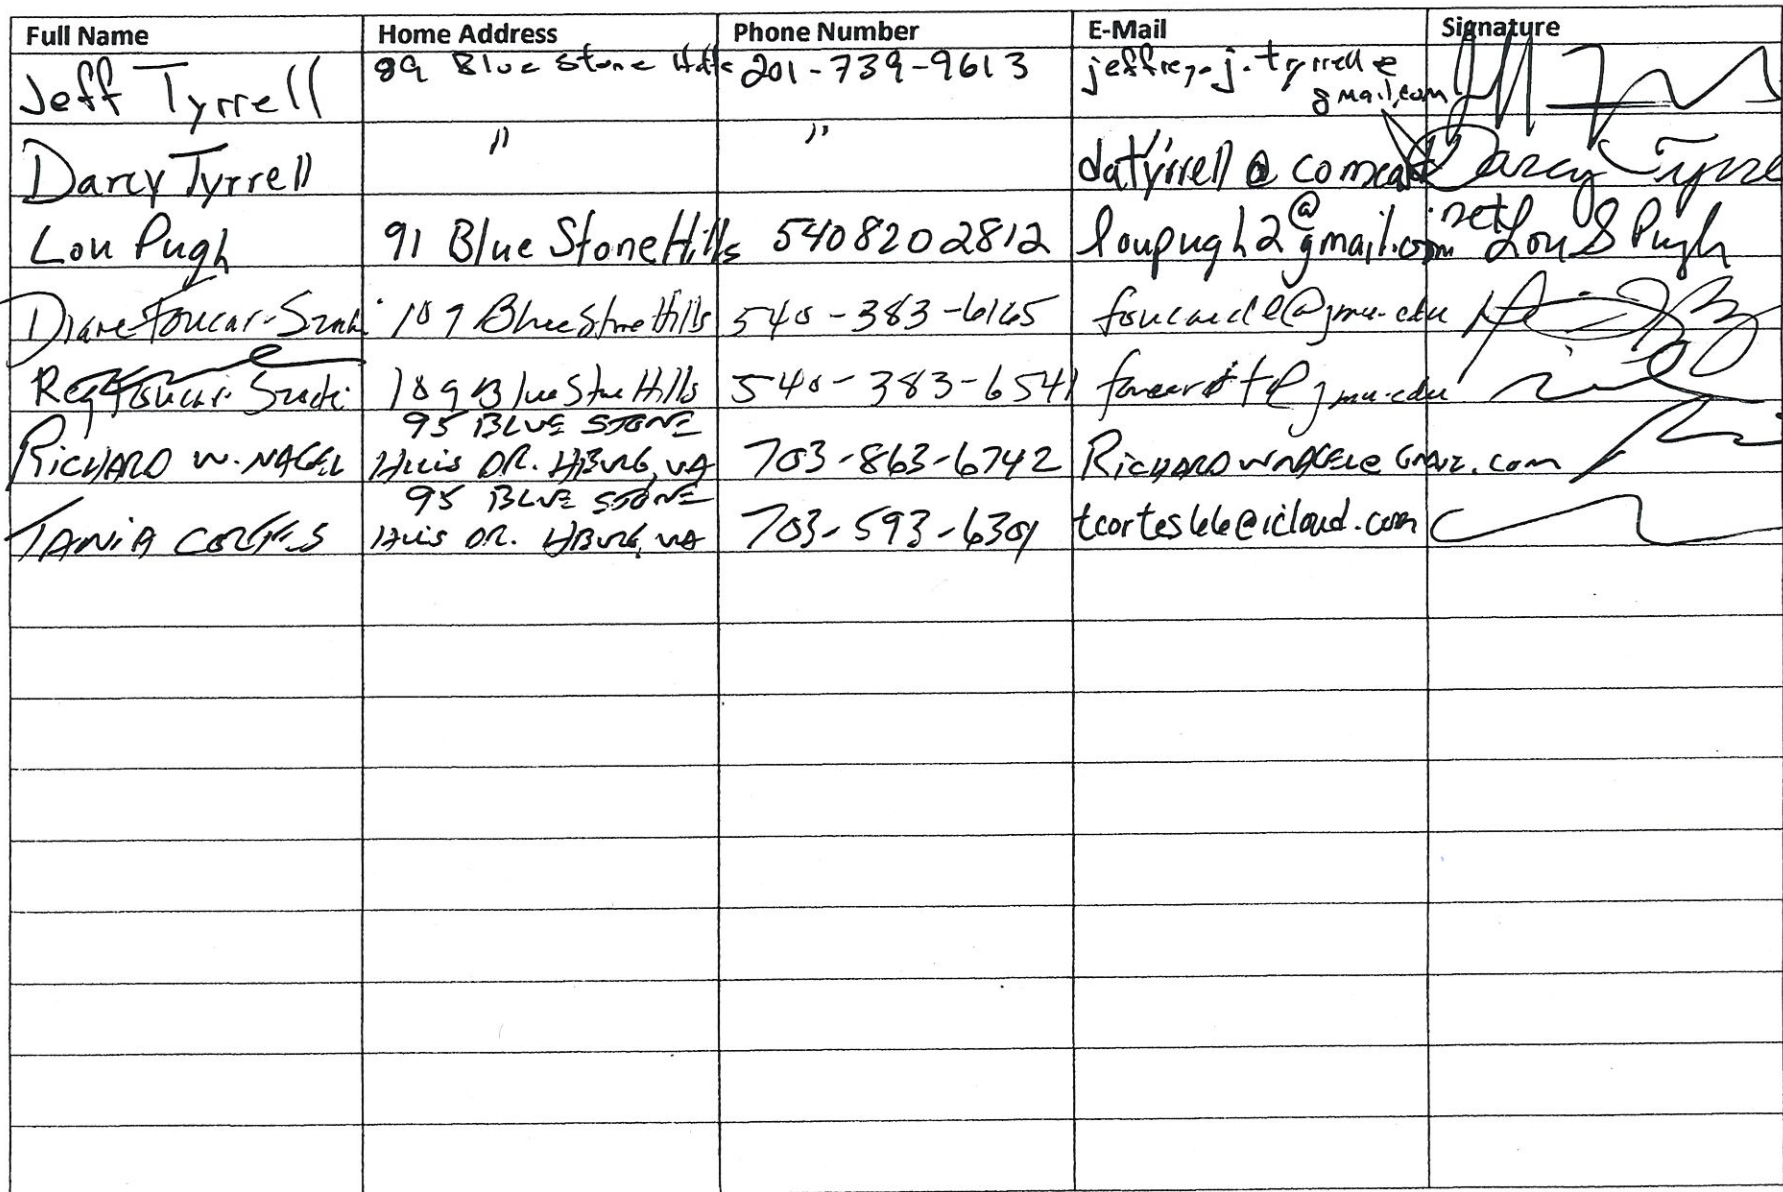 Full Name Home Address Phone Number E-Mail Signature
Jeff Tyrrell 89 Blue Stone Hills 201-739-9613 jeffrey.j.tyrrell@
gmail.com
Darcy Tyrrell " " datyrrell@comcast Darcy Tyrre
.net
Lou Pugh 91 Blue Stone Hills 5408202812 loupugh2@gmail.com Lou S Pugh
Diane Foucar- 109 Blue Stone Hills 540-383-6165 @jmu.edu
Reg Foucar- 109 Blue Stone Hills 540-383-6541 @jmu.edu
95 BLUE STONE
RICHARD W. NAGEL HILLS DR. HBURG, VA 703-863-6742
95 BLUE STONE
TANIA CORTES HILLS DR. HBURG, VA 703-593-6301 tcortes66@icloud.com